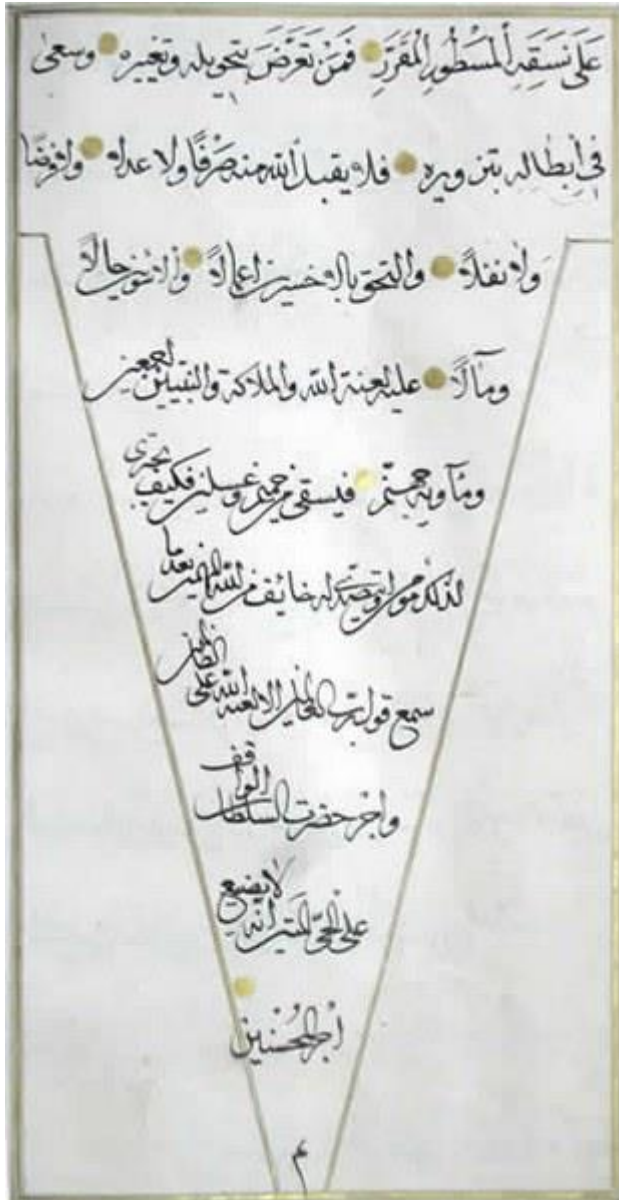 عَلَى نَسَقِهِ الْمَسْطُورِ الْمُقَرَّرِ فَمَنْ تَعَرَّضَ بتحويله وتغييره وسعى
فى ابطاله بتزويره فلا يقبل الله منه صَرْفًا ولا عدلا ولا فرضًا
ولا نفلاً والتحق بالاخسرين اعمالاً والاسوئين حالاً
ومآلاً عليه لعنة الله والملائكة والنبيين اجمعين
ومأويه جهنّم فيسقى من حميم وغسلين فكيف يجترى
لذلك من خائف من الله بعد ما
سمع قول ربّ العالمين الا لعنة الله على الظالمين
واجر حضرت السلطان الواقف
على الحىّ المتين انّه لا يضيع
اجر المحسنين
م